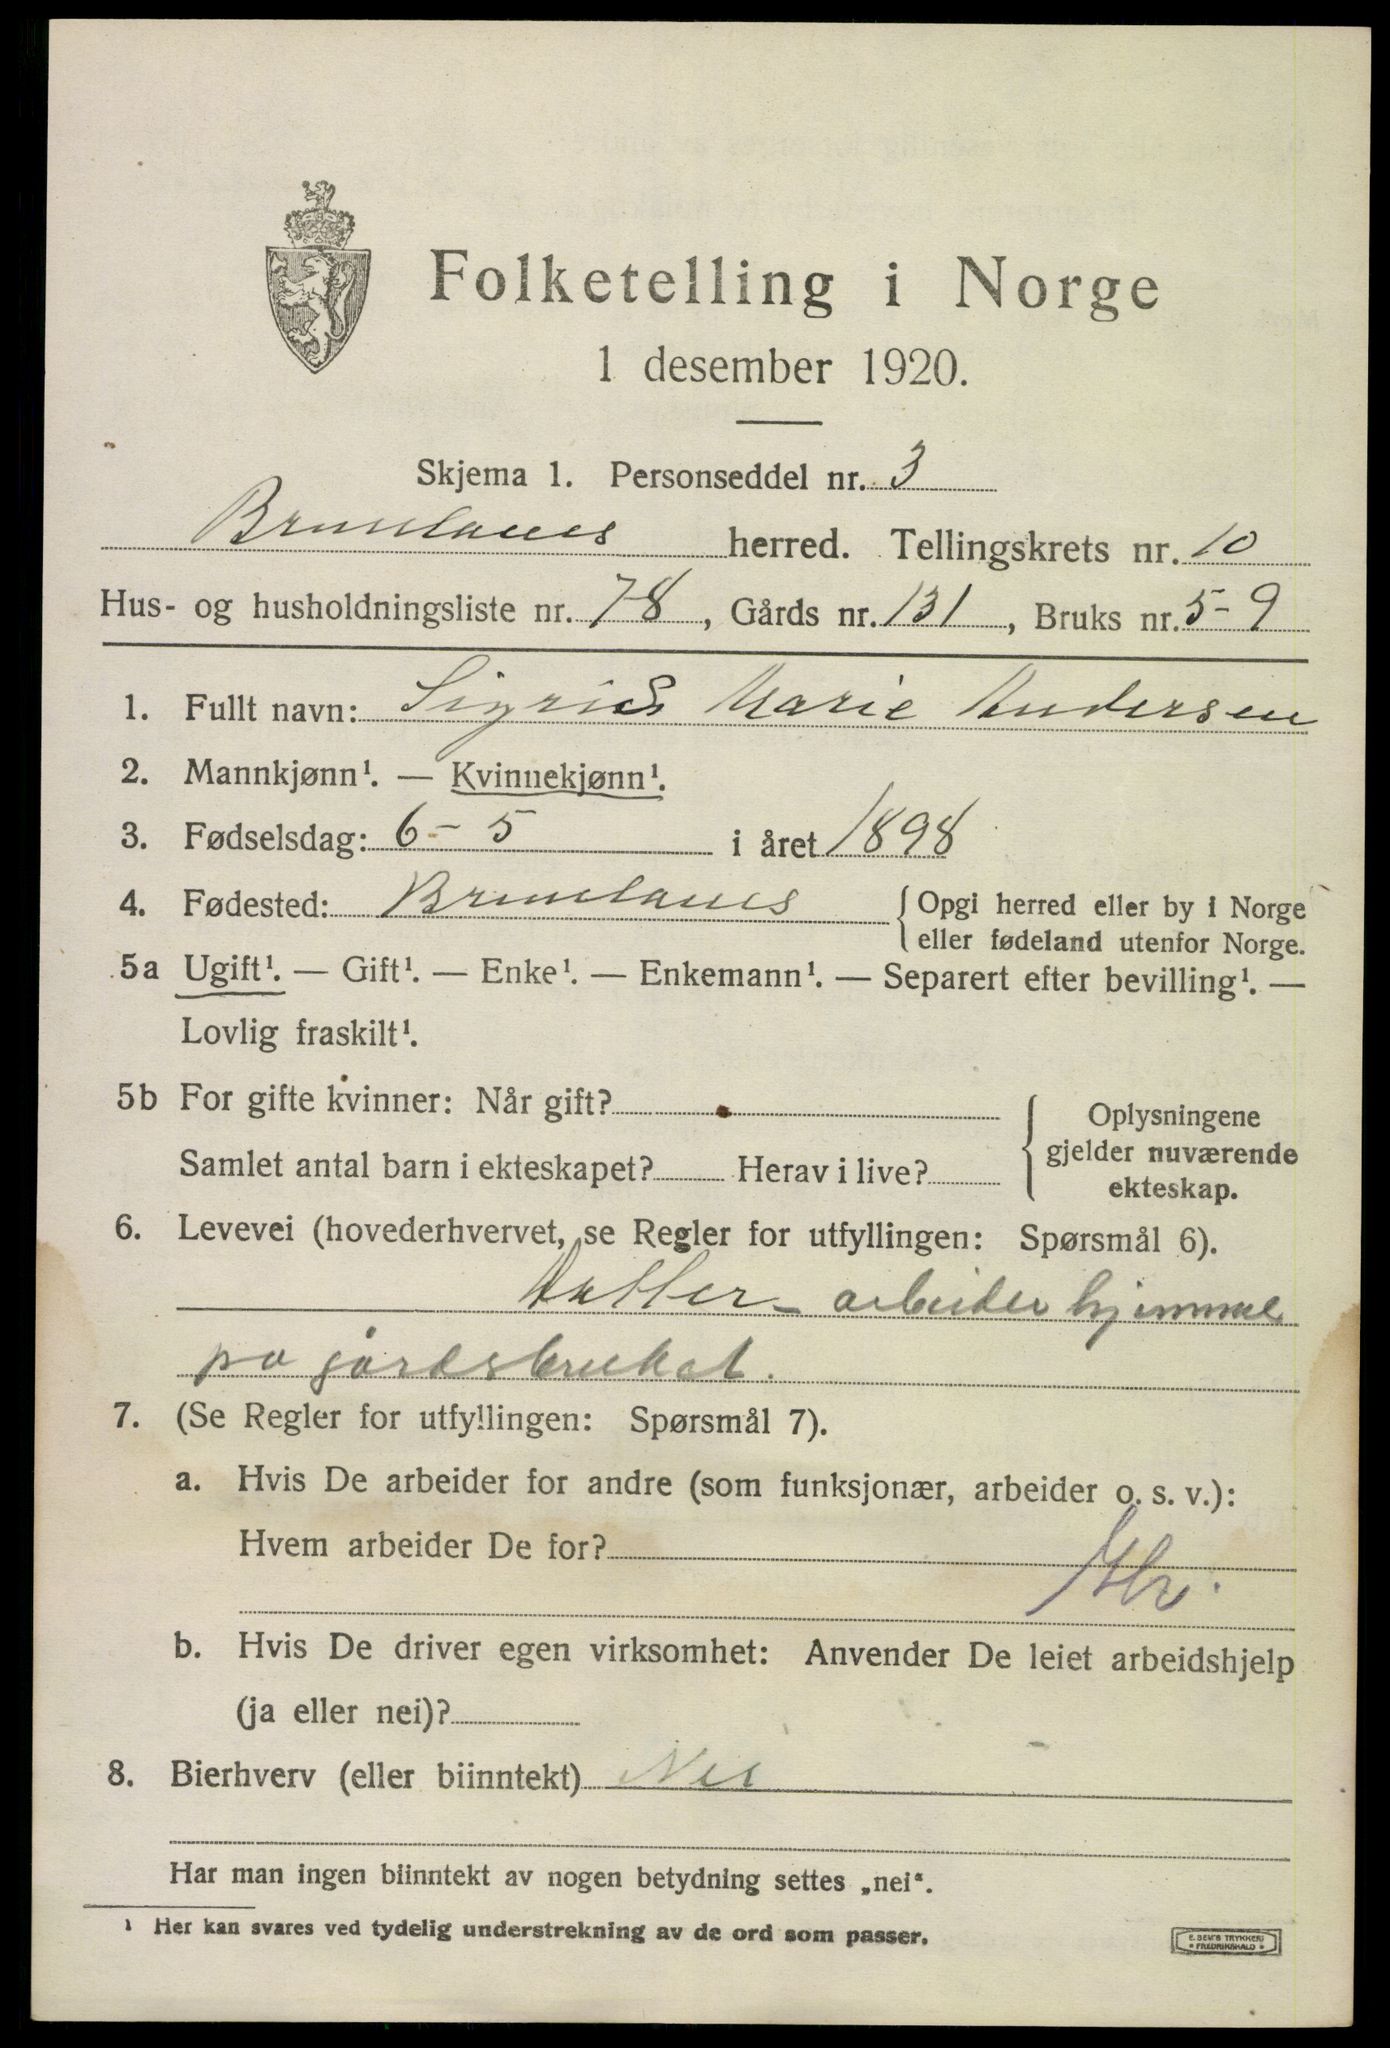 Folketelling i Norge
1 desember 1920.
Skjema 1. Personseddel nr. 3
Brunlanes herred. Tellingskrets nr. 10
Hus- og husholdningsliste nr. 78, Gårds nr. 131, Bruks nr. 5-9
1. Fullt navn: Sigrid Marie Andersen
2. Mannkjønn¹. — Kvinnekjønn¹.
3. Fødselsdag: 6-5 i året 1898
4. Fødested: Brunlanes { Opgi herred eller by i Norge
eller fødeland utenfor Norge.
5a Ugift¹. — Gift¹. — Enke¹. — Enkemann¹. — Separert efter bevilling¹. —
Lovlig fraskilt¹.
5b For gifte kvinner: Når gift?
Samlet antal barn i ekteskapet? Herav i live?
{ Oplysningene
gjelder nuværende
ekteskap.
6. Levevei (hovederhvervet, se Regler for utfyllingen: Spørsmål 6).
Datter - arbeider hjemme
på gårdsbruket.
7. (Se Regler for utfyllingen: Spørsmål 7).
a. Hvis De arbeider for andre (som funksjonær, arbeider o. s. v.):
Hvem arbeider De for?
b. Hvis De driver egen virksomhet: Anvender De leiet arbeidshjelp
(ja eller nei)?
8. Bierhverv (eller biinntekt) Nei
Har man ingen biinntekt av nogen betydning settes „nei“.
¹ Her kan svares ved tydelig understrekning av de ord som passer.
E. SEM'S TRYKKERI
* FREDRIKSHALD *